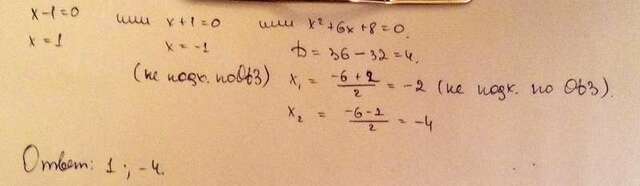 x-1=0 или x+1=0 или x²+6x+8=0.
x=1 x=-1 D=36-32=4.
(не подх. по ОВЗ) x₁ = (-6+2)/2 = -2 (не подх. по ОВЗ).
x₂ = (-6-2)/2 = -4
Ответ: 1; -4.